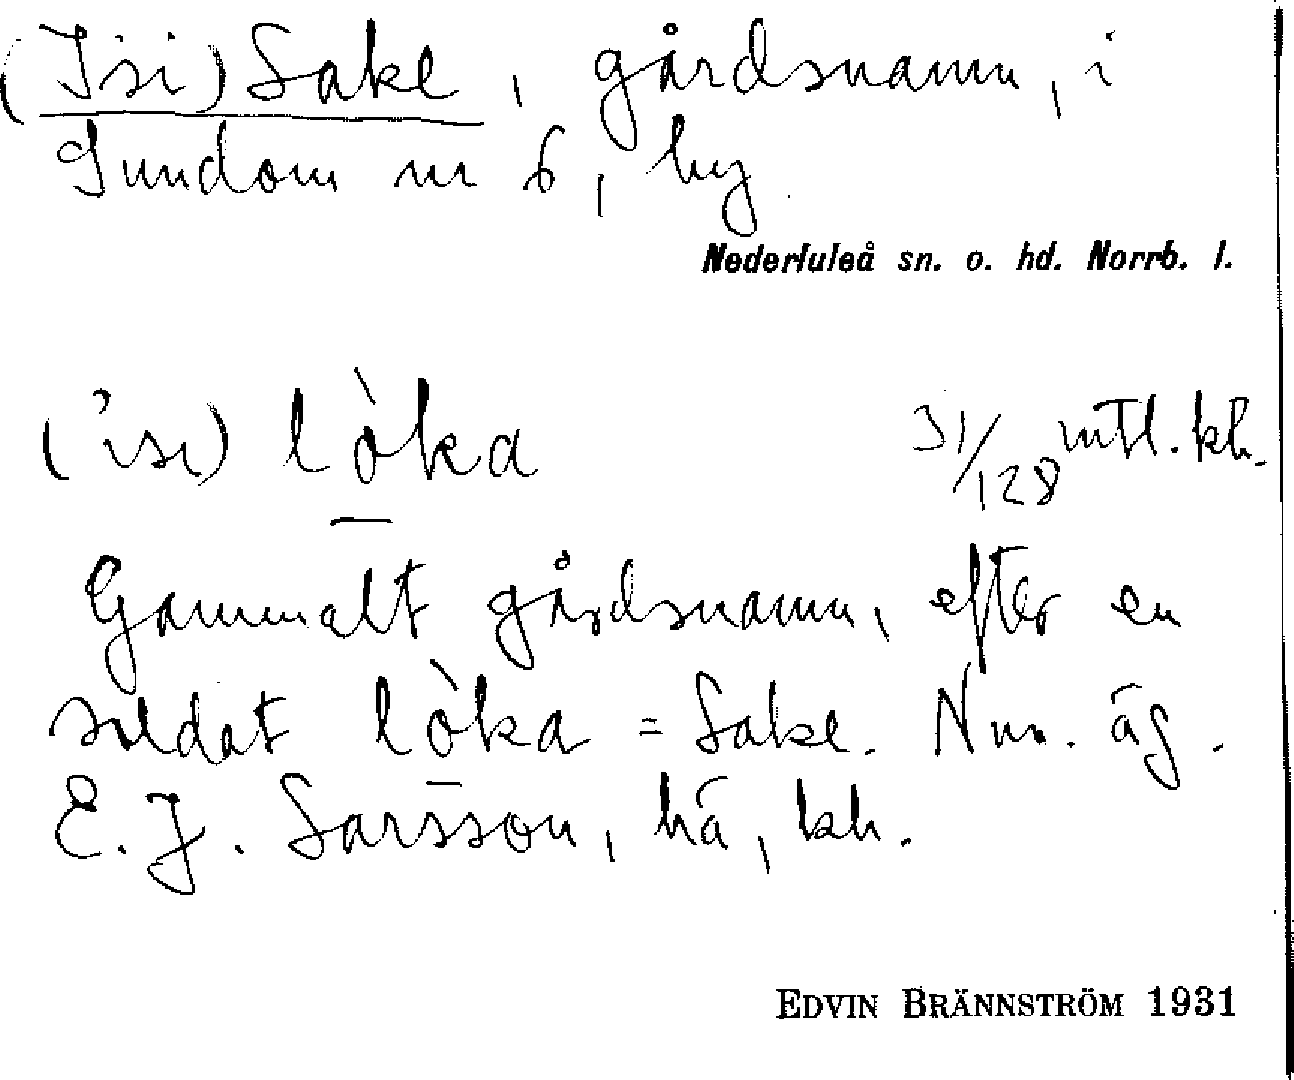 (Isi) Lake, gårdsnamn, i
Sundom nr 6, by.
Nederluleå sn. o. hd. Norrb. l.
('isi) lòka 31/128 mtl. kh.
Gammalt gårdsnamn, efter en
soldat lòka = Lake. Nuv. äg.
E. J. Larsson, hä, kh.
EDVIN BRÄNNSTRÖM 1931